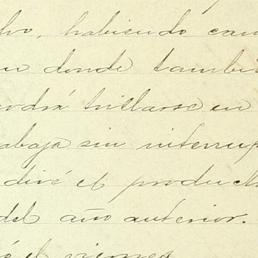 lvo, habiendo cam
en donde tambié
odrá trillarse en
abaja sin interrup
diré el product
del año anterior.
é el viernes